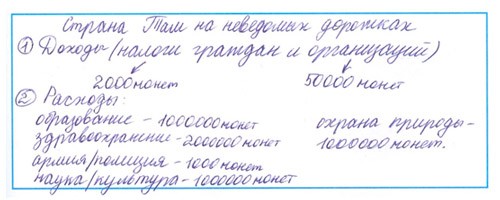 Страна Там на неведомых дорожках
① Доходы (налоги граждан и организаций)
2000 монет 50000 монет
② Расходы:
образование - 1000000 монет охрана природы -
здравоохранение - 2000000 монет 1000000 монет.
армия/полиция - 1000 монет
наука/культура - 1000000 монет